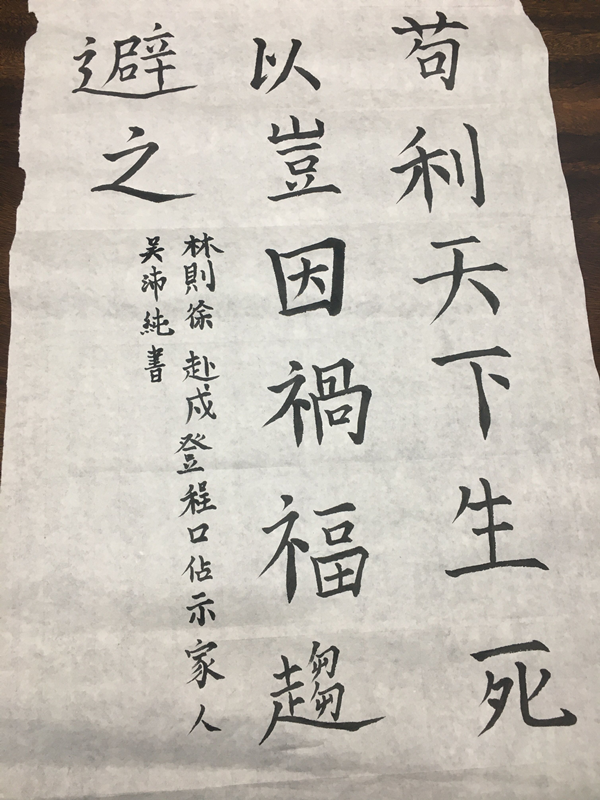 苟利天下生死
以豈因禍福趨
避之
林則徐赴戍登程口佔示家人
吴沛純書